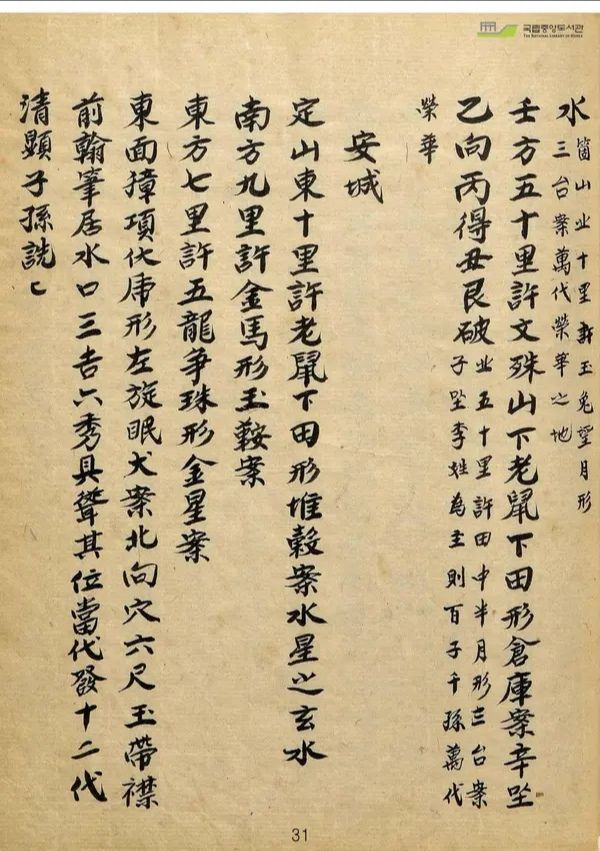 국립중앙도서관
THE NATIONAL LIBRARY OF KOREA
水 箇山北十里許玉兎望月形
三台案萬代榮華之地
壬方五十里許文殊山下老鼠下田形倉庫案辛坐
乙向丙得丑艮破 北五十里許田中半月形三台案
子坐李姓為主則百子千孫萬代
榮華
安城
定山東十里許老鼠下田形堆穀案水星之玄水
南方九里許金馬形玉鞍案
東方七里許五龍爭珠形金星案
東面獐項伏虎形左旋眠犬案北向穴六尺玉帶襟
前翰峯居水口三吉六秀具聳其位當代發十二代
清顯子孫詵〻
31